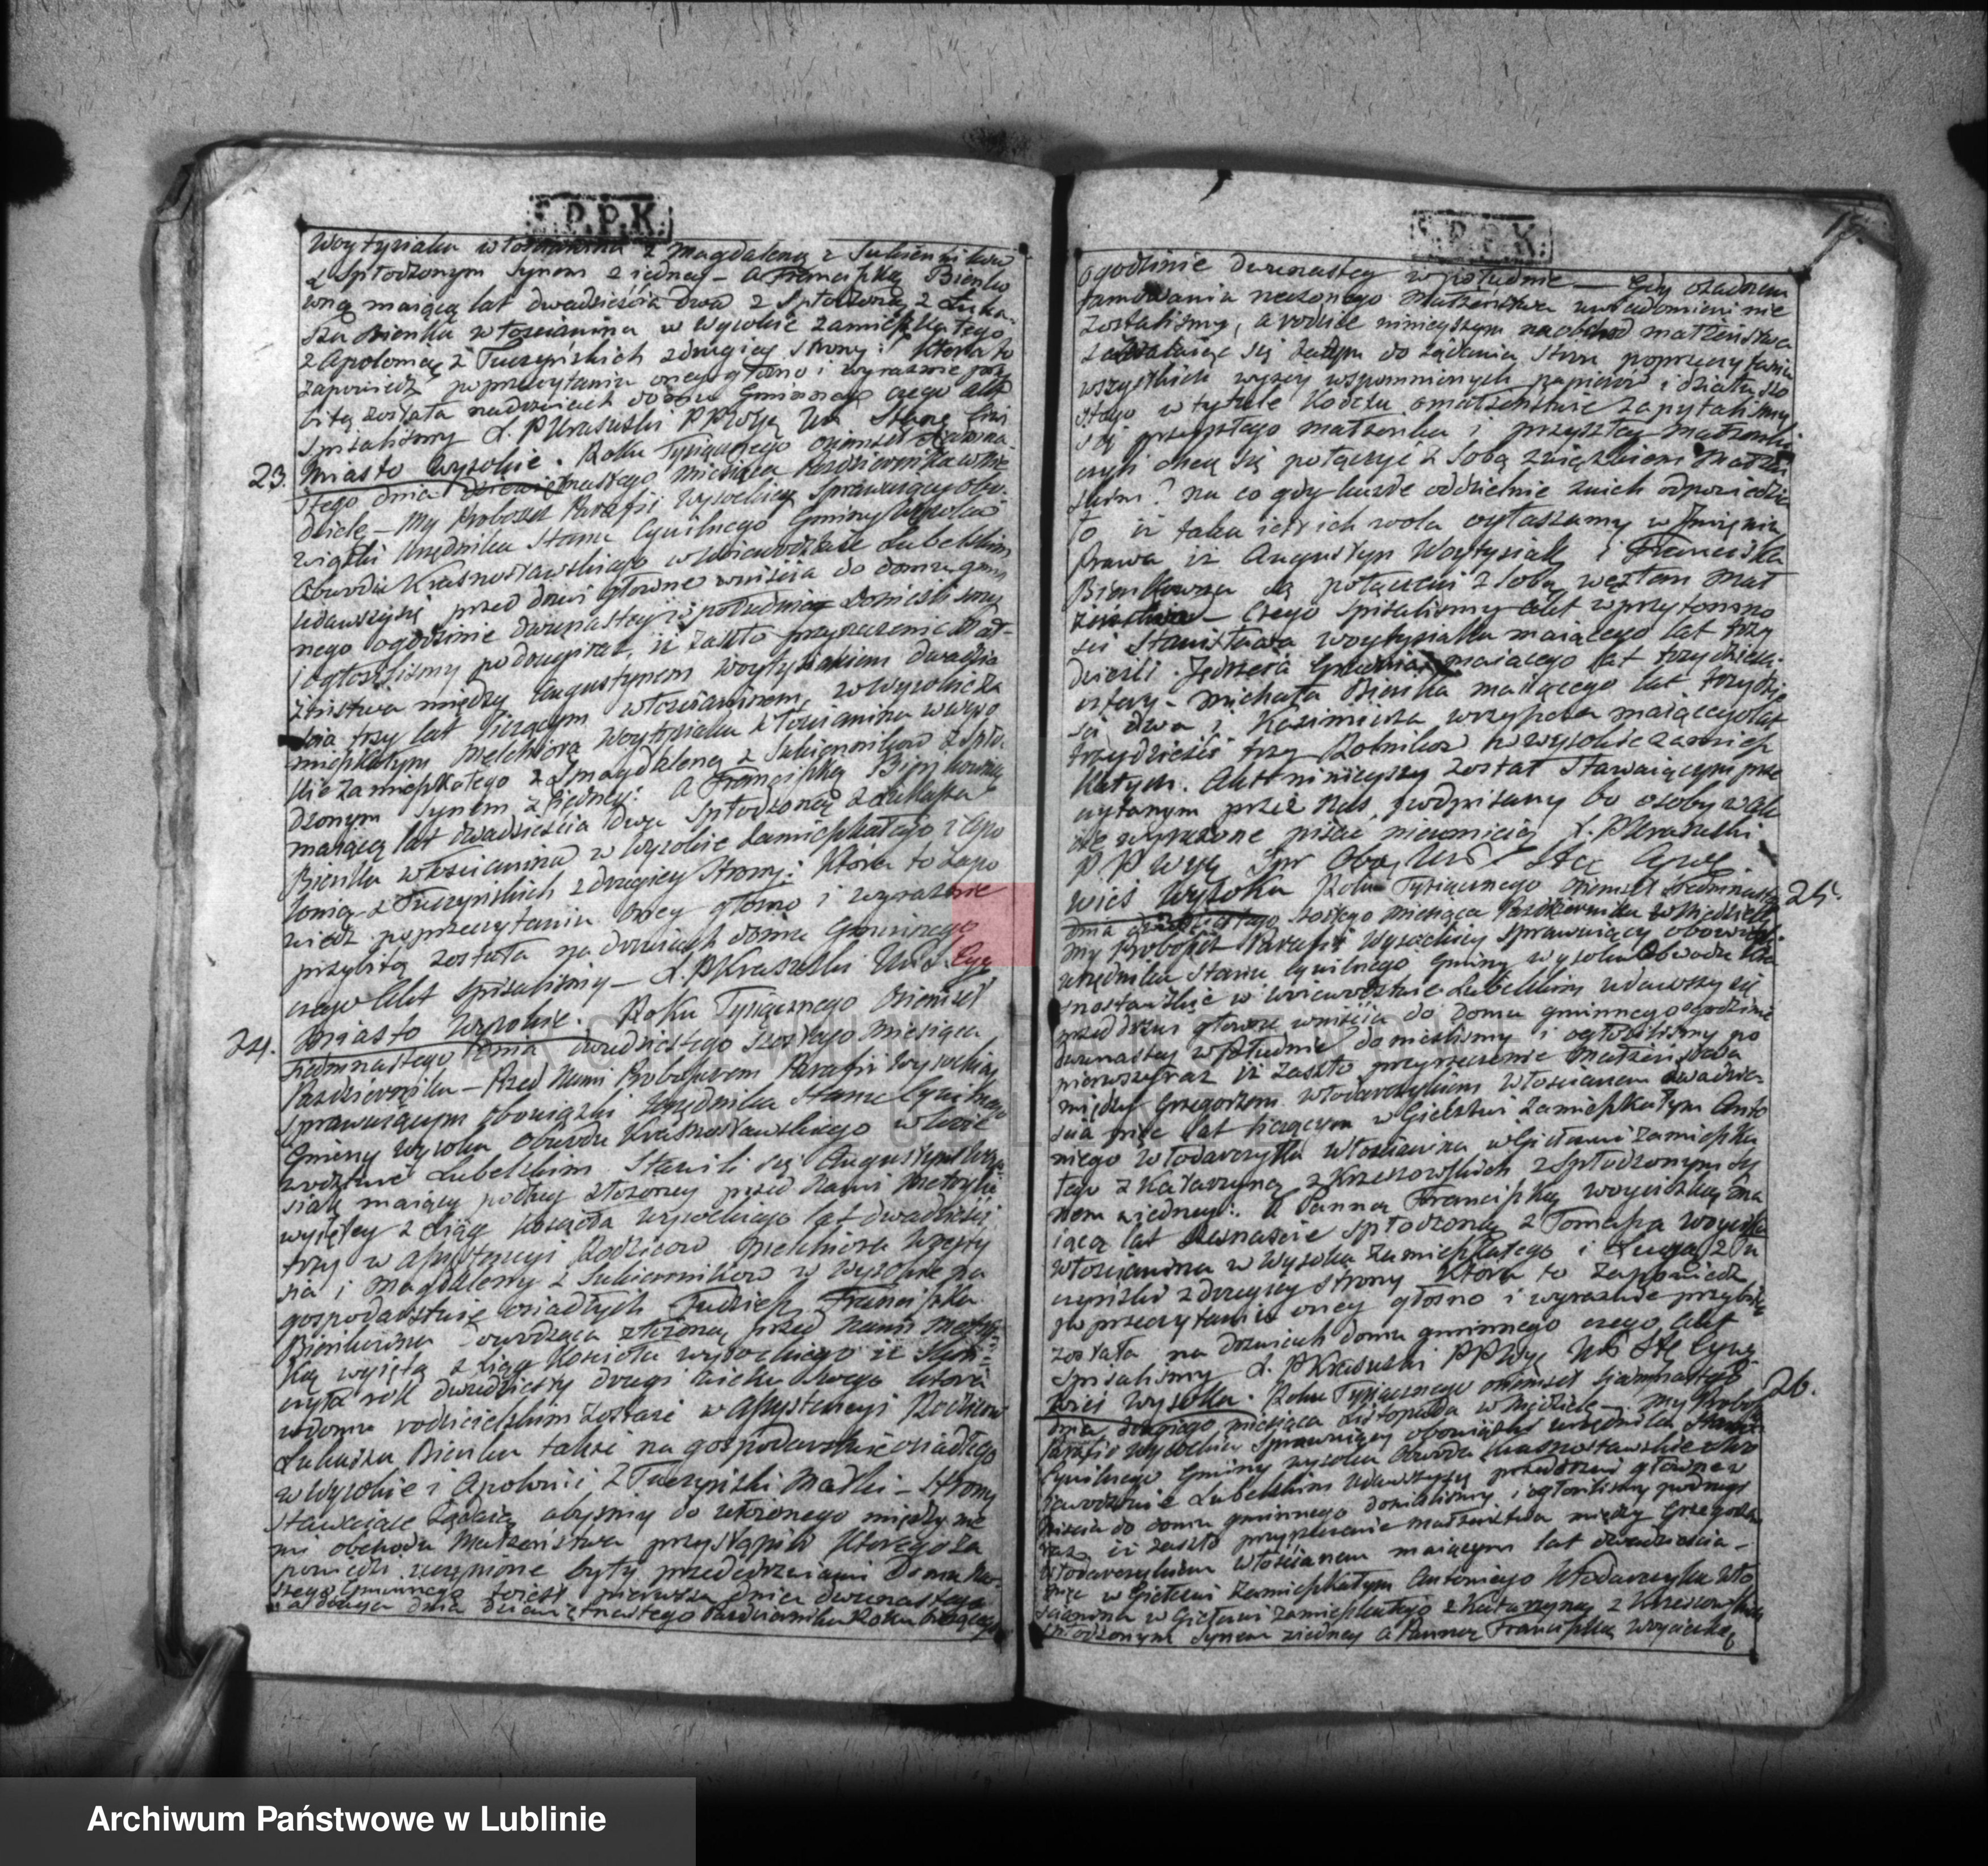 S.P.P.K.
Woytysiaka włościanina z Magdaleną z Sukienników
z Spłodzonym Synem z iedney – a Franciszką Bienko
wną maiącą lat dwadzieścia dwa z Spłodzoną z Łuka
sza Bieńka włościanina w Wysokie zamieszkałego
z Apolonią z Tuczyńskich z drugiey strony: Która to
zapowiedź po przeczytaniu oney głośno i wyraźnie przy
bitą została na drzwiach domu Gminnego czego akt
spisaliśmy X. P Krasuski PPWys Ur Stanu Cwi
23. Miasto Wysokie. Roku Tysiącznego ośmset siedmna-
stego dnia dziewiętnastego miesiąca Pazdziernika w Nie
dzielę – My Proboszcz Parafii Wysockiey Sprawuiący obo-
wiązki Urzędnika Stanu Cywilnego Gminy Wysokie
Obwodu Krasnostawskiego w Woiewodztwie Lubelskim
udawszy się przed drzwi główne weniścia do domu gmin
nego o godzinie dwunastey w południe donieśliśmy
i ogłosiliśmy po drugi raz, iż zaszło przyrzeczenie Mał-
żeństwa między Augustynem Woytysiakiem dwadzie
ścia trzy lat liczącym włościaninem, w Wysokie za
mieszkałym Melchiora Woytysiaka włościanina w Wyso
kie zamieszkałego z Magdaleną z Sukienników z spło-
dzonym Synem z iedney: a Franciszką Bienkowną
maiącą lat dwadzieścia dwa spłodzoną z Łukasza
Bieńka włościanina w Wysokie zamieszkałego i Apo
lonią z Tuczyńskich z drugiey strony: Która to zapo
wiedź po przeczytaniu oney głośno i wyraźnie
przybitą została na drzwiach domu Gminnego
czego akt spisaliśmy – X. P Krasuski Ur S. Cyw
24. Miasto Wysokie. Roku Tysiącznego ośmset
siedmnastego Dnia dwudziestego szostego miesiąca
Pazdziernika – Przed Nami Proboszczem Parafii Wysockiey
Sprawuiącym obowiązki Urzędnika Stanu Cywilnego
Gminy Wysoka Obwodu Krasnostawskiego w Woie
wodztwie Lubelskim Stawili się Augustyn Woyty
siak maiący podług złożoney przed Nami Metryki
wyiętey z Xiąg Kościoła Wysockiego lat dwadzieścia
trzy w assystencyi Rodziców Melchiora Woyty
sia i Magdaleny z Sukienników w Wysokie na
gospodarstwie osiadłych Tudzież Franciszka
Bienkowna dowodząca złożoną przed Nami Metry-
ką wyiętą z Xiąg Kościoła Wysockiego iż skoń-
czyła rok dwudziesty drugi wieku swego która
w domu rodzicielskim zostaie w assystencyi Rodziców
Łukasza Bieńka także na gospodarstwie osiadłego
w Wysokie i Apolonii z Tuczyński Matki – Strony
Stawaiące żądaią abyśmy do ułożonego między nie
mi obchodu Małżeństwa przystąpili którego za
powiedzi uczynione były przed drzwiami Domu Na-
szego Gminnego to iest pierwsza dnia dwunastego
a druga dnia dziewiętnastego Pazdziernika Roku bieżącego
S.P.P.K.
o godzinie dwunastey w południe – Gdy o żadnem
tamowaniu rzeczonego Małżeństwa uwiadomieni nie
zostaliśmy, a rodzice ninieyszym na obchód małżeństwa
zezwalaiąc się zatym do żądania Stron po przeczytaniu
wszystkich wyżey wspomnionych papierów i działu szo
stego w tytule Kodexu o małżeństwie zapytaliśmy
się przyszłego małżonka i przyszłey małżonki
czyli chcą się połączyć z sobą związkiem Małżeń
skim? na co gdy każde oddzielnie z nich odpowiedzia
ło iż taka iest ich wola ogłaszamy w Imieniu
Prawa iż Augustyn Woytysiak i Franciszka
Bienkowna są połączeni z sobą węzłem Mał
żeństwa – Czego spisaliśmy akt w przytomno
ści Stanisława Woytysiaka maiącego lat trzy
dzieści. Jędrzeia maiącego lat trzydzieści
cztery – Michała Bieńka maiącego lat trzydzie
ści dwa i Kazimierza maiącego lat
trzydzieści trzy Rolników w Wysokie zamiesz
kałych. Akt ninieyszy został Stawaiącym prze
czytanym przez Nas podpisany bo osoby w ak
cie wyrażone pisać nieumieią X. P Krasuski
P P Wys Spr Obo Urs Sta Cywi
25. Wieś Wysoka Roku Tysiącznego ośmset siedmnastego
dnia dwudziestego szostego miesiąca Pazdziernika w Niedzielę
My Proboszcz Parafii Wysockiey sprawuiący obowiązki
urzędnika Stanu Cywilnego Gminy Wysoka Obwodu Kra
snostawskie w Woiewodztwie Lubelskim udawszy się
przed drzwi główne weniścia do domu gminnego o godzinie
dwunastey w południe donieśliśmy i ogłosiliśmy po
pierwszy raz iż zaszło przyrzeczenie Małżeństwa
między Grzegorzem Włodarczykiem włościanem dwadzie-
ścia pięć lat liczącym w Giełczwi zamieszkałym Anto
niego Włodarczyka włościanina w Giełczwi zamieszka
łego z Katarzyną z Krzeszowskich z Spłodzonym Sy
nem z iedney: A Panną Franciszką Woyciszką ma
iącą lat szesnaście spłodzoną z Tomasza Woyciszka
włościanina w Wysoka zamieszkałego i
z drugiey strony Która to zapowiedź
po przeczytaniu oney głośno i wyraźnie przybitą
została na drzwiach domu gminnego czego akt
Spisaliśmy X. P Krasuski PPWys Ur Sta Cywi
26. Wieś Wysoka. Roku Tysiącznego ośmset siedmnastego
dnia drugiego miesiąca Listopada w Niedzielę – My Probosz
Parafii Wysockiey Sprawuiący obowiązki urzędnika Stanu
Cywilnego Gminy Wysoka Obwodu Krasnostawskie w Wo
iewodztwie Lubelskim udawszy się przed drzwi główne w
niścia do domu gminnego donieśliśmy i ogłosiliśmy po drugi
raz iż zaszło przyrzeczenie Małżeństwa między Grzegorzem
Włodarczykiem włościanem maiącym lat dwadzieścia –
pięć w Giełczwi zamieszkałym Antoniego Włodarczyka wło
ścianina w Giełczwi zamieszkałego z Katarzyną z Krzeszowskich
spłodzonym Synem z iedney a Panną Franciszką Woyciszką
Archiwum Państwowe w Lublinie